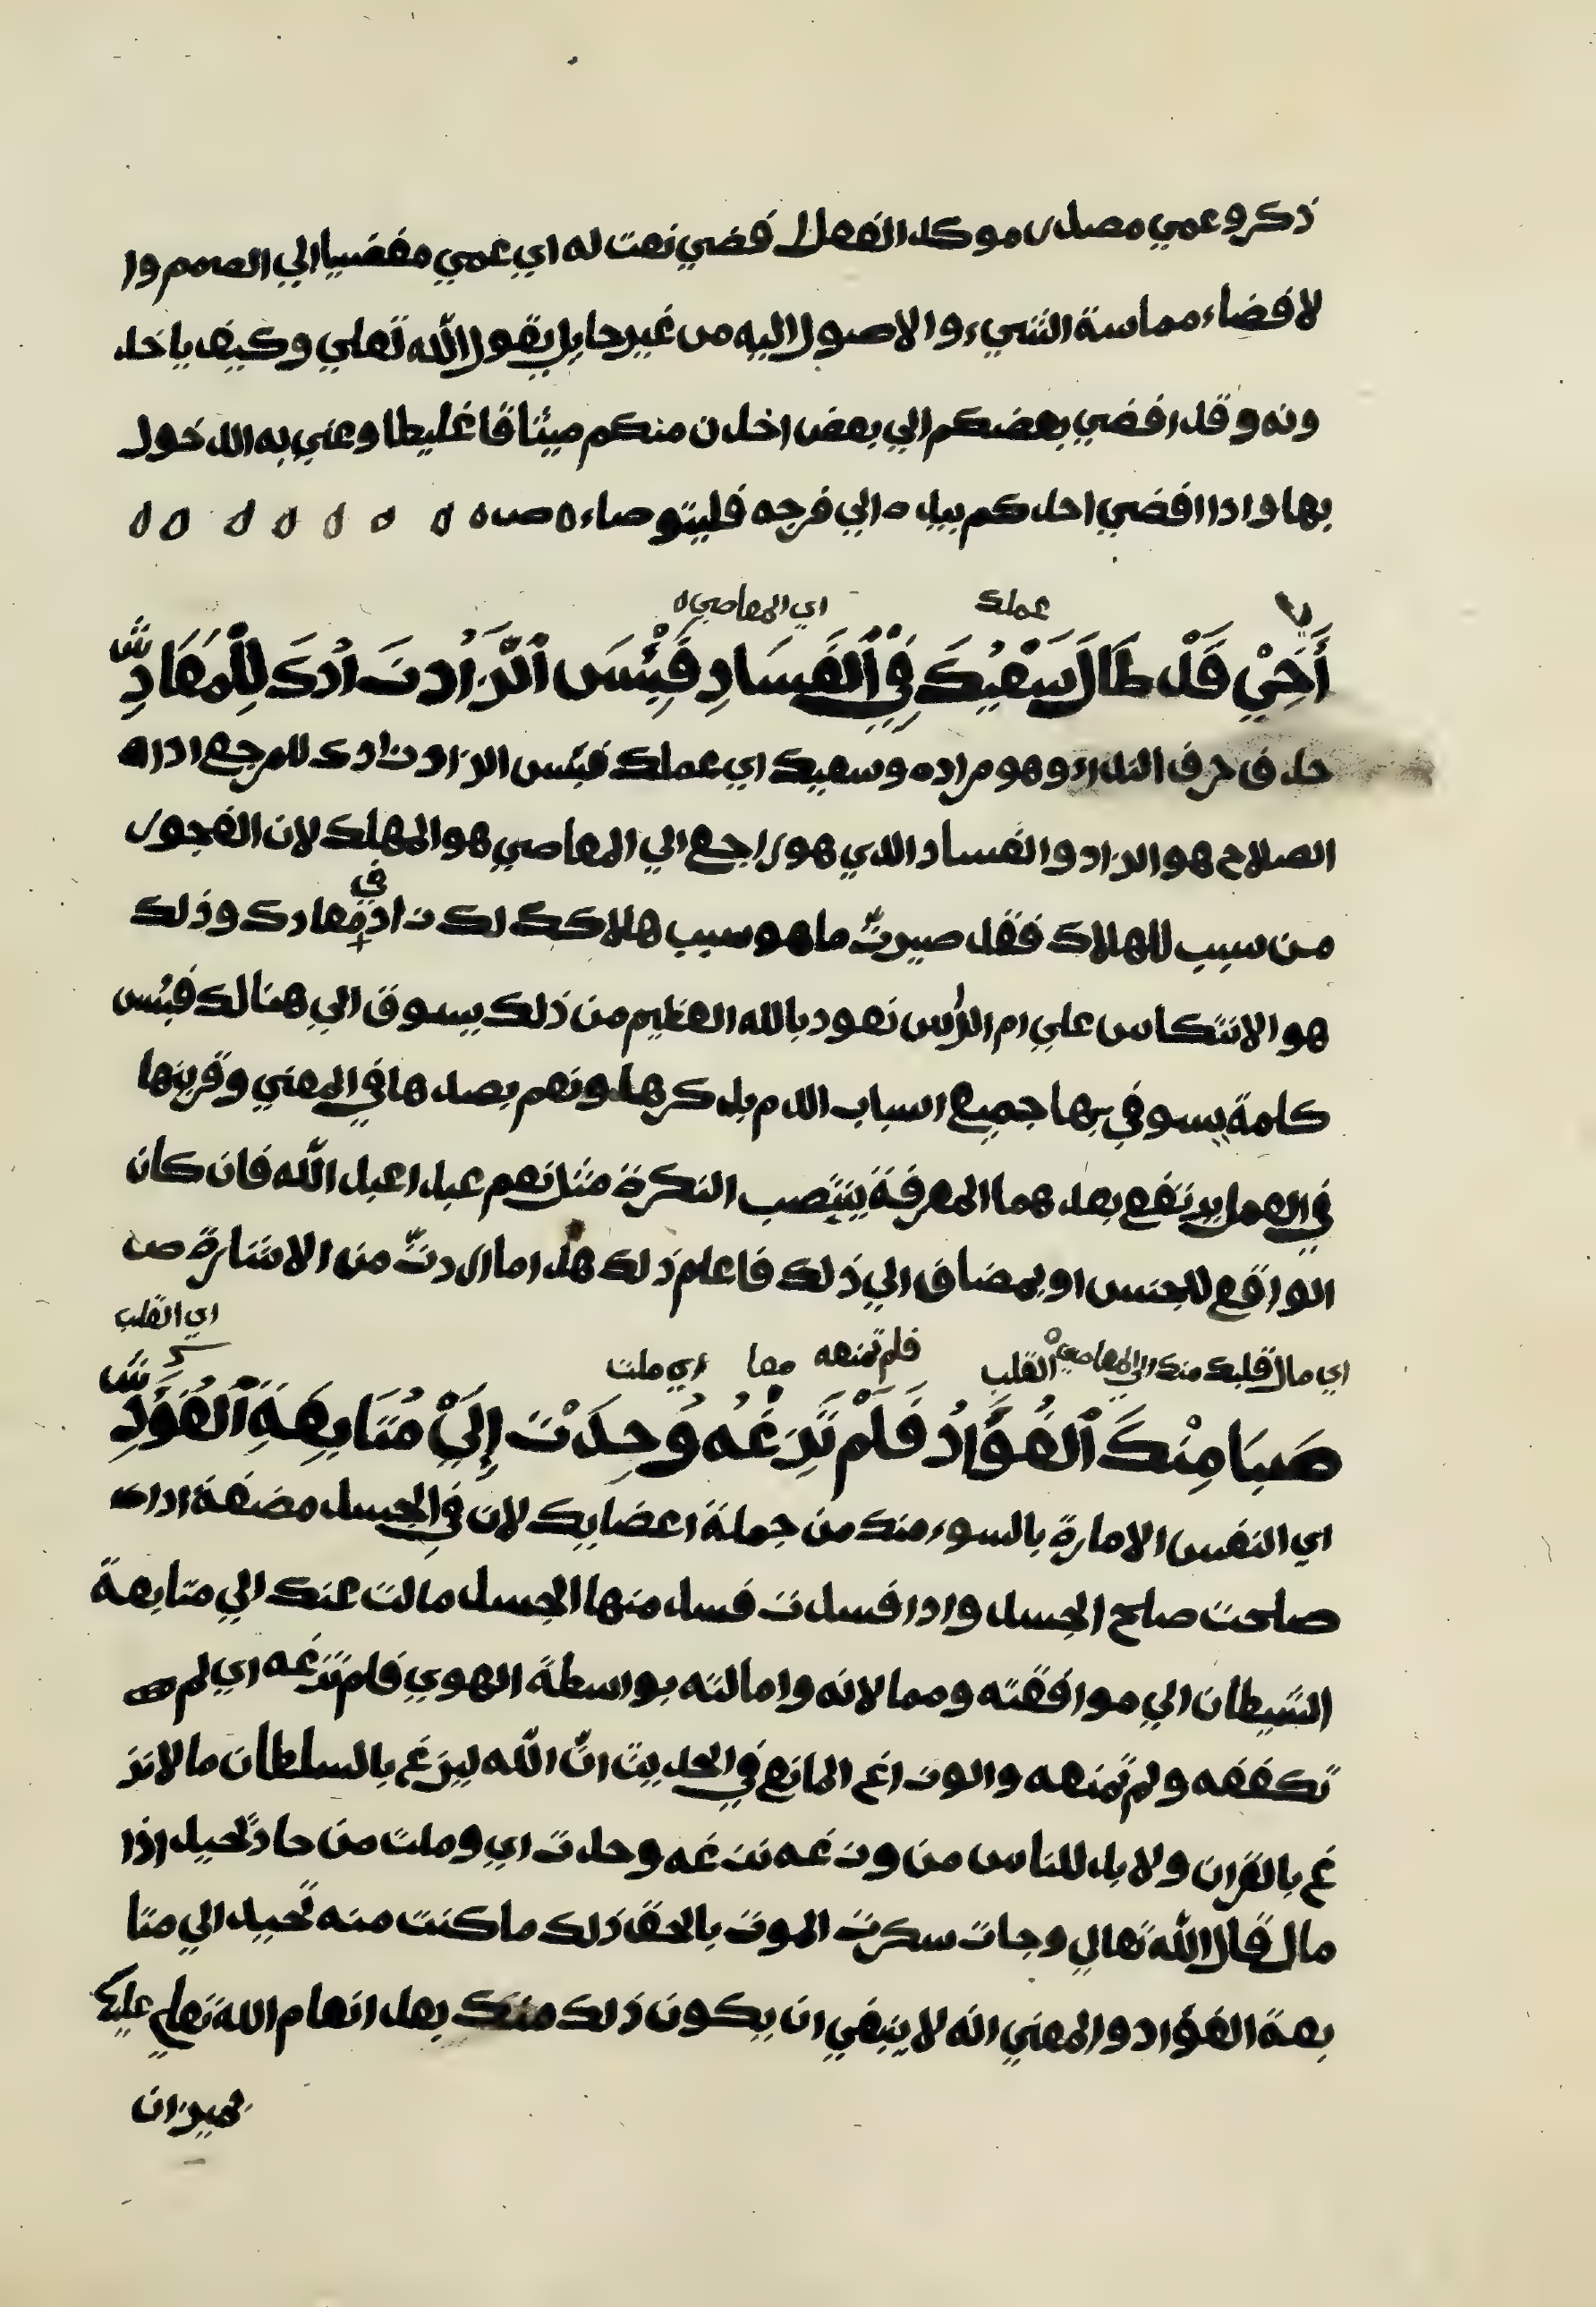 ذكر وعمي مصدر موكد الفعل فضي نعت له اي عمي مفضيا الي الصمم وا
لافضاء مماسة الشيء والاصول اليه من غير حايل يقول الله تعلي وكيف ياخذ
ونه وقد افضي بعضكم الي بعض اخذن منكم ميثاقا غليظا وعني به الدخول
بها واذا افضي احدكم بيده الي فرجه فليتوصاء ه صه ه ه ه ه ه ه ه ه
عملك اي المعاصي ه
أَخِيْ قَدْ طَالَ سَعْيُكَ فِيْ ٱلْفَسَادِ فَبِئْسَ ٱلزَّادُ زَادُكَ لِلْمَعَادِ ش
حذف حرف النداء وهو مراده وسعيك اي عملك فبئس الزاد زادك للمرجع اداه
الصلاح هو الزاد والفساد الذي هو راجع الي المعاصي هو المهلك لان الفجور
من سبب للهلاك فقد صيرت ما هو سبب هلاكك لك زاد في معادك وذلك
هو الانتكاس علي ام الرأس نعوذ بالله العظيم من ذلك يسوق الي هنالك فبئس
كلمة يسوفي بها جميع اسباب الذم بذكرها ونعم بصدها في المعني وقرينها
في العمل يرتفع بعدهما المعرفة ينتصب النكرة مثل نعم عبدا عبد الله فان كان
الواقع للجنس او بمضاف الي ذلك فاعلم ذلك هذا ما اردت من الاشارة ص
اي مال قلبك منك الي المعاصي ه القلب فلم تمنعه معا اي ملت اي القلب
صَبَا مِنْكَ ٱلْفُؤَادُ فَلَمْ تَزِعْهُ وَحِدَتْ إِلَيْ مُتَابَعَةِ ٱلْفُؤَادِ ش
اي النفس الامارة بالسوء منك من جملة اعضايك لان في الجسد مضغة اداه
صلحت صلح الجسد وادا فسدت فسد منها الجسد مالت عنك الي متابعة
الشيطان الي موافقته وممالاته وامالته بواسطة الهوي فلم تزعه اي لم
تكففه ولم تمنعه والوازع المانع في الحديث ان الله ليزع بالسلطان ما لا يز
ع بالقران ولا بد للناس من وزعه تزعه وحدت اي وملت من حاد تحيد اذا
مال قال الله تعالي وجات سكرت الموت بالحق ذلك ما كنت منه تحيد الي متا
بعة الفؤاد والمعني انه لا ينبغي ان يكون ذلك منك بعد انعام الله تعلي عليك
لميزان